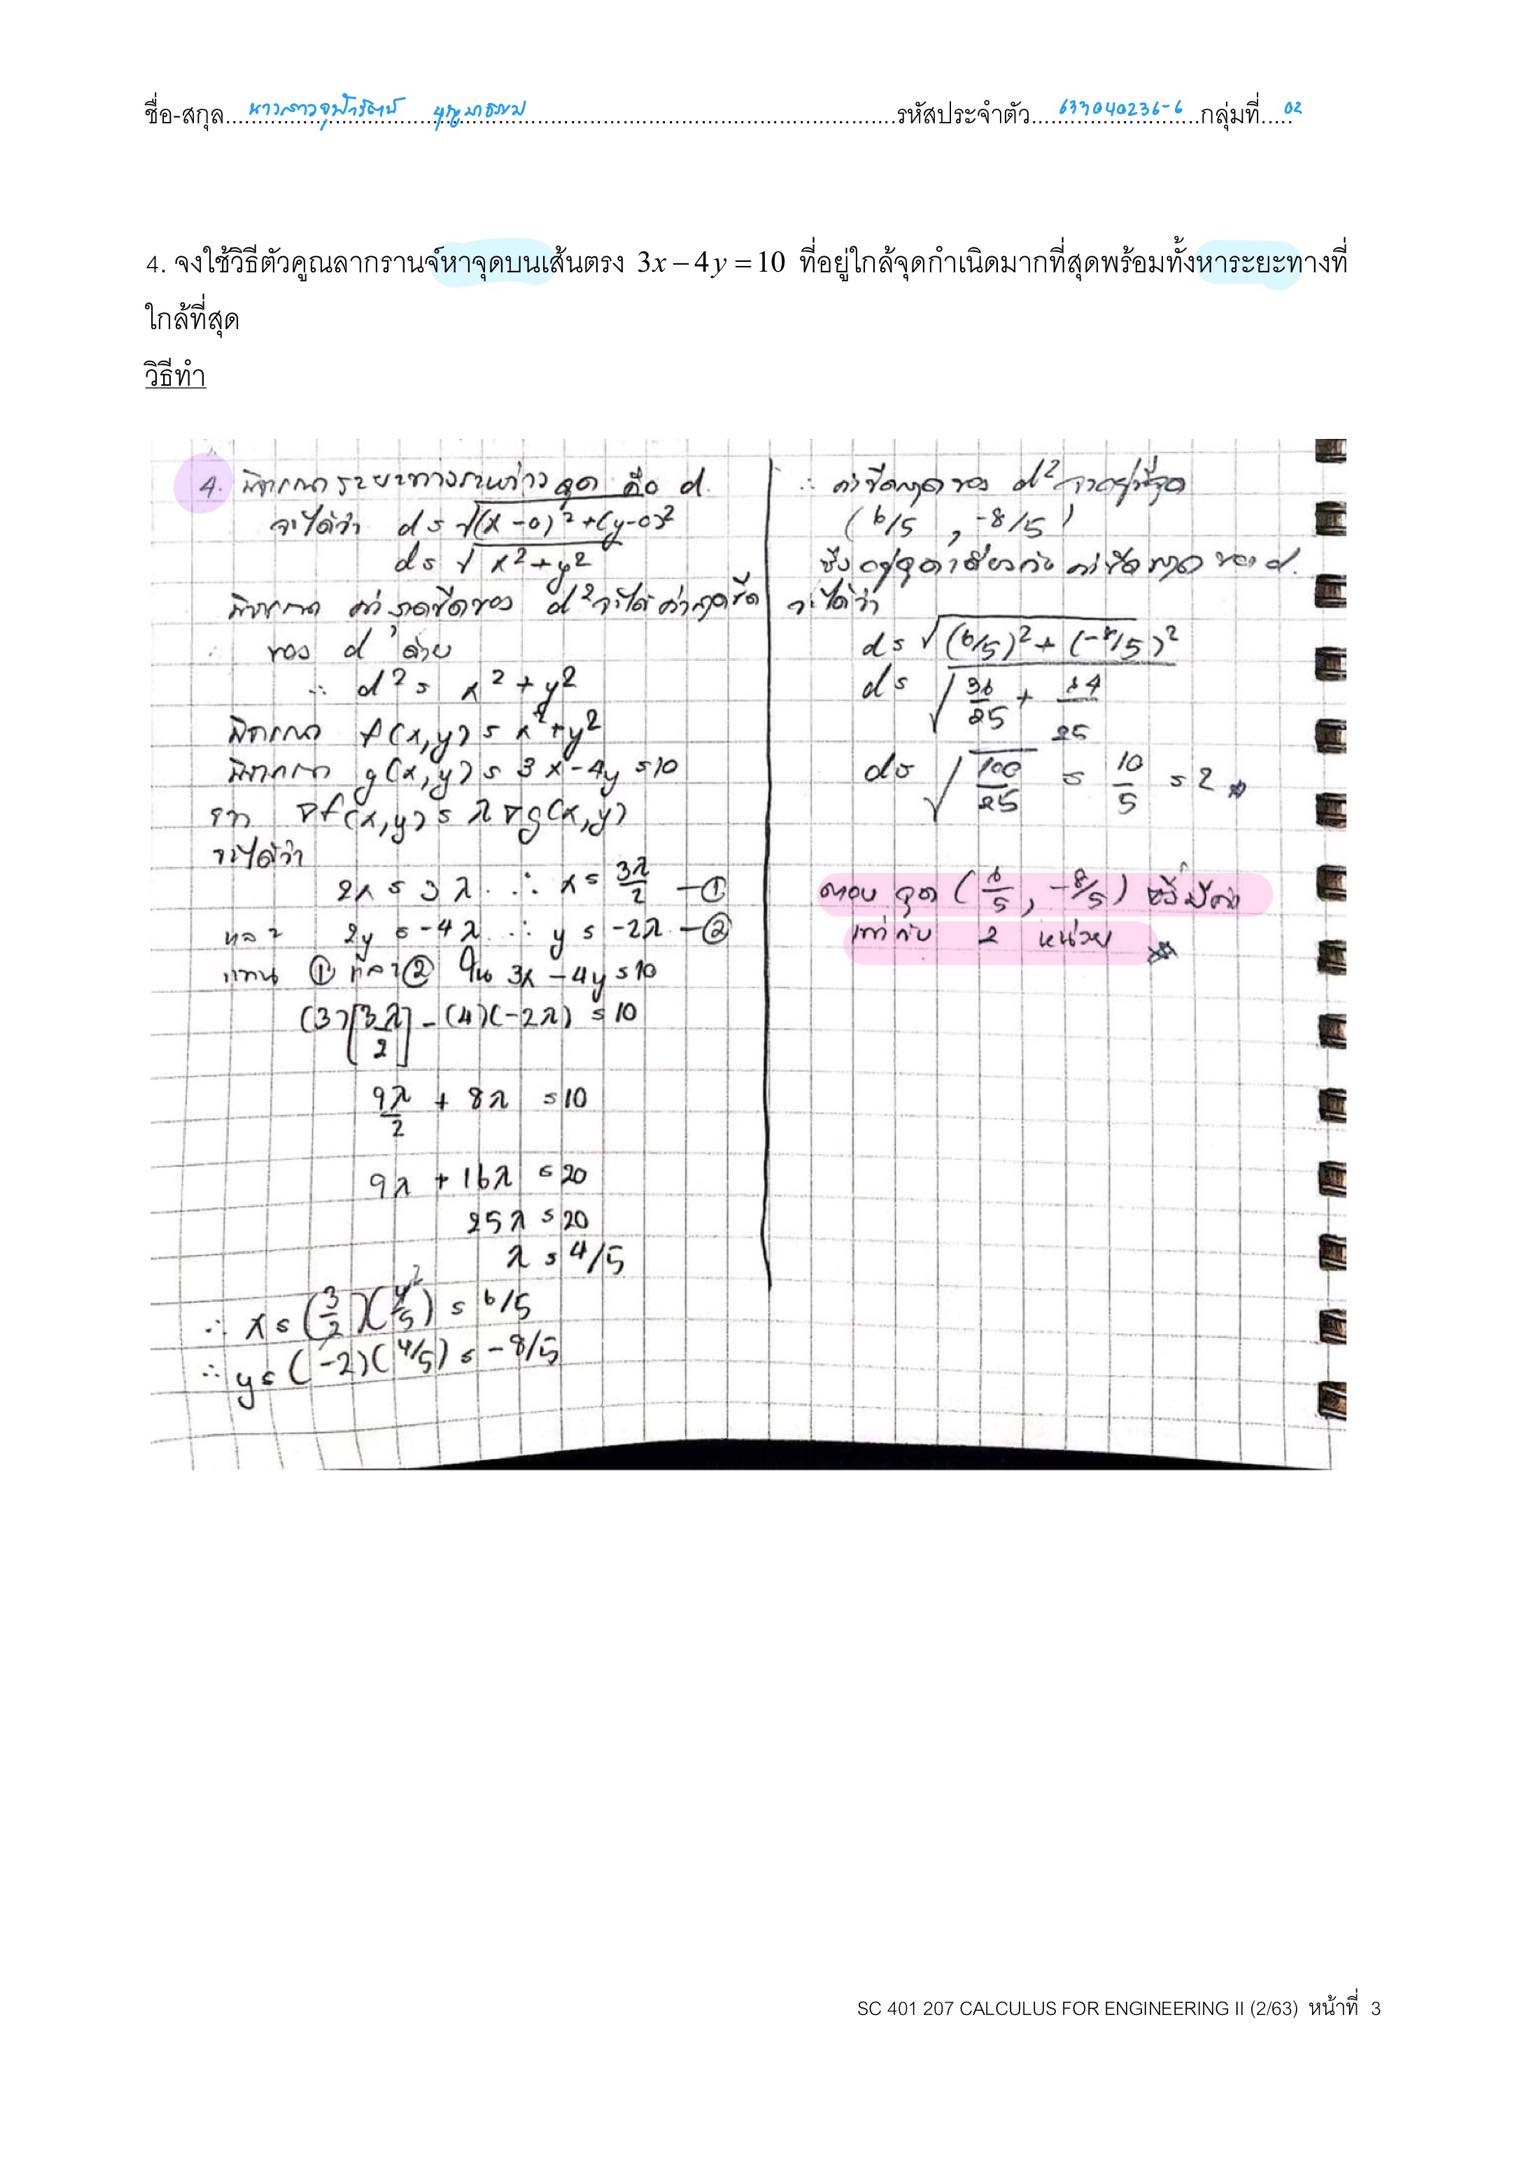 ชื่อ-สกุล..........รหัสประจำตัว..........633040236-6..........กลุ่มที่.....02
4. จงใช้วิธีตัวคูณลากรานจ์หาจุดบนเส้นตรง 3x − 4y = 10 ที่อยู่ใกล้จุดกำเนิดมากที่สุดพร้อมทั้งหาระยะทางที่
ใกล้ที่สุด
วิธีทำ
4. พิจารณาระยะทางระหว่างจุด คือ d.
จะได้ว่า d = √(x-0)²+(y-0)²
d = √x²+y²
พิจารณา ค่าสุดขีดของ d² จะได้ค่าสุดขีด
ของ d ด้วย
∴ d² = x²+y²
พิจารณา f(x,y) = x²+y²
พิจารณา g(x,y) = 3x-4y = 10
จาก ∇f(x,y) = λ∇g(x,y)
จะได้ว่า
2x = 3λ ∴ x = 3λ/2 —①
และ 2y = -4λ ∴ y = -2λ —②
แทน ① และ ② ใน 3x-4y = 10
(3)[3λ/2] - (4)(-2λ) = 10
9λ/2 + 8λ = 10
9λ + 16λ = 20
25λ = 20
λ = 4/5
∴ x = (3/2)(4/5) = 6/5
∴ y = (-2)(4/5) = -8/5
∴ ค่าขีดสุดของ d² จะอยู่ที่จุด
(6/5 , -8/5)
ซึ่งอยู่จุดเดียวกับ ค่าขีดสุด ของ d.
จะได้ว่า
d = √(6/5)²+(-8/5)²
d = √36/25 + 64/25
d = √100/25 = 10/5 = 2
ตอบ จุด (6/5, -8/5) ซึ่งมีค่า
เท่ากับ 2 หน่วย
SC 401 207 CALCULUS FOR ENGINEERING II (2/63) หน้าที่ 3